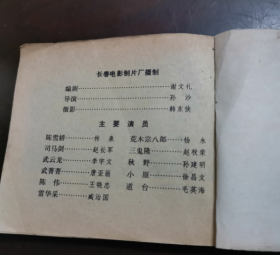 长春电影制片厂摄制
编剧 谢文礼
导演 孙沙
摄影 韩东侠
主要演员
陈雪娇——林泉 荒木宗八郎——杨水
司马剑——赵长军 三鬼隆——赵校荣
武云龙——李宇文 秋野——孙建明
武菁菁——唐亚丽 小原——徐昌文
陈伟——王晓忠 道台——毛英海
雷华采——臧治国